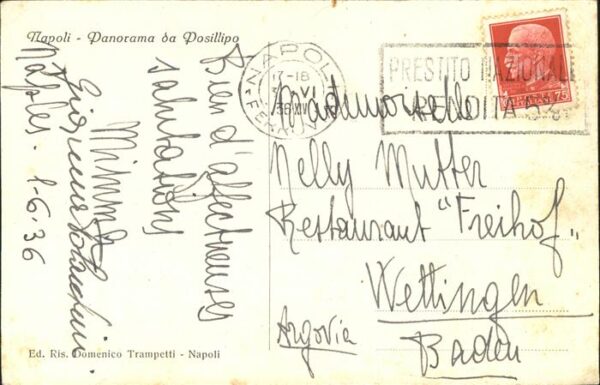 Napoli - Panorama da Posillipo
Bien d'affectueuses
salutations
Naples. 1-6-36
Ed. Ris. Domenico Trampetti - Napoli
NAPOLI
17-18
VI
FERROVIA
PRESTITO NAZIONALE
RENDITA
75
Mademoiselle
Nelly Mutter
Restaurant "Freihof"
Wettingen
Argovia
Baden